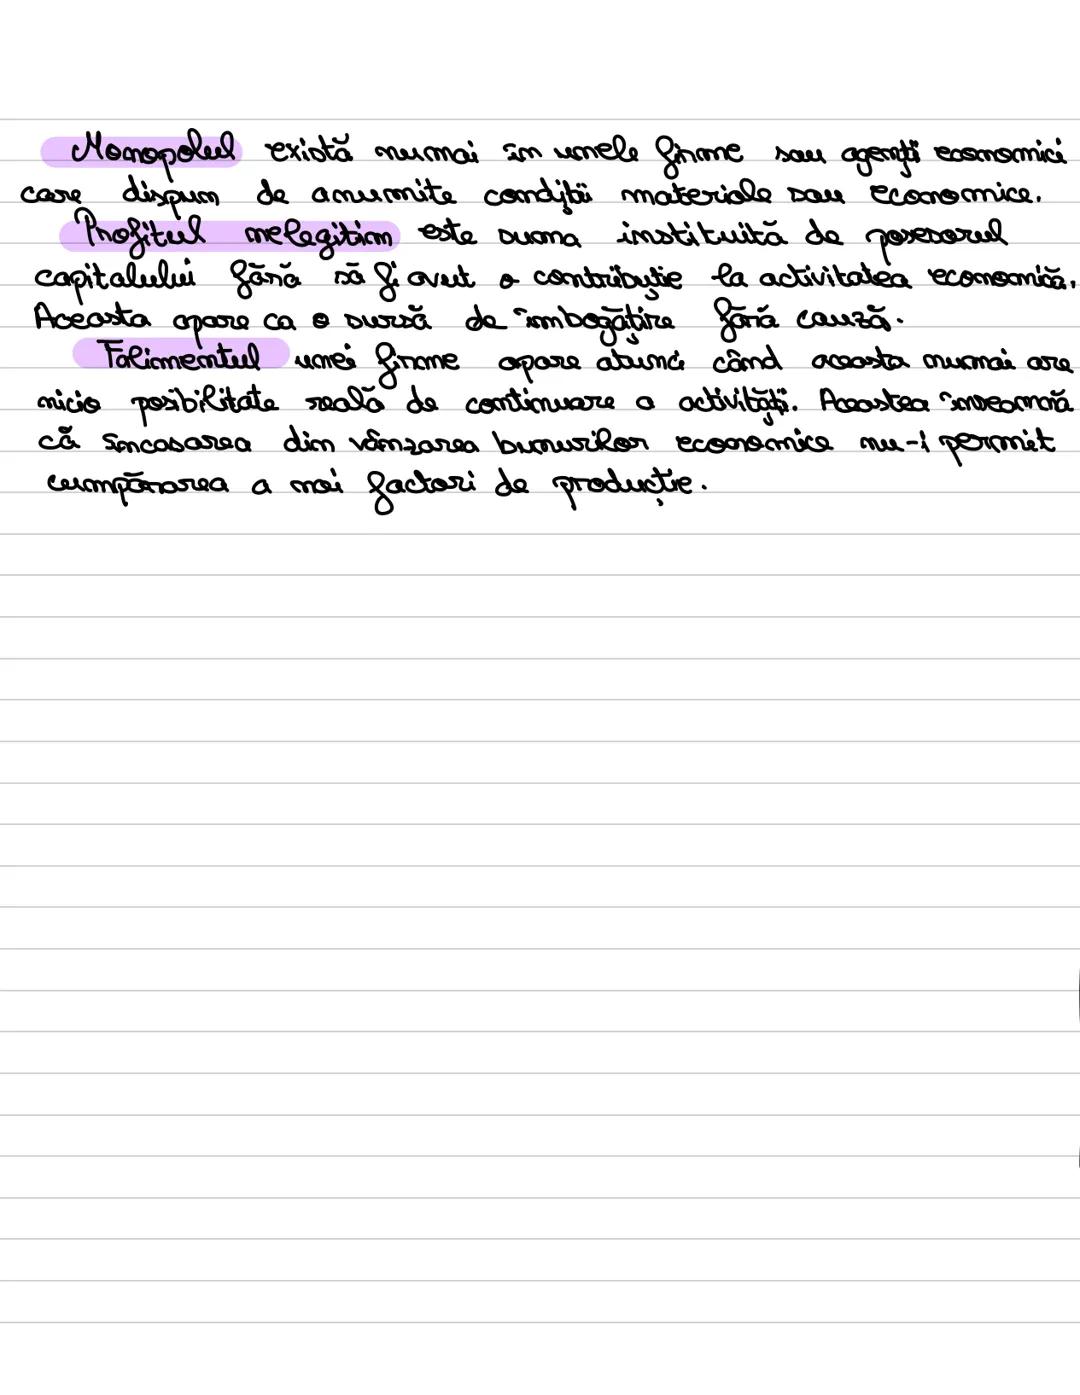 Monopolul există numai în unele firme sau agenții economici
care dispun de anumite condiții materiale sau economice.
Profitul nelegitim este suma instituită de posesorul
capitalului fără să fi avut o contribuție la activitatea economică.
Aceasta apare ca o sursă de îmbogățire fără cauză.
Falimentul unei firme apare atunci când aceasta numai are
nicio posibilitate reală de continuare a activității. Aceastea înseamnă
că încasarea din vânzarea bunurilor economice nu-i permit
cumpărarea a mai factori de producție.